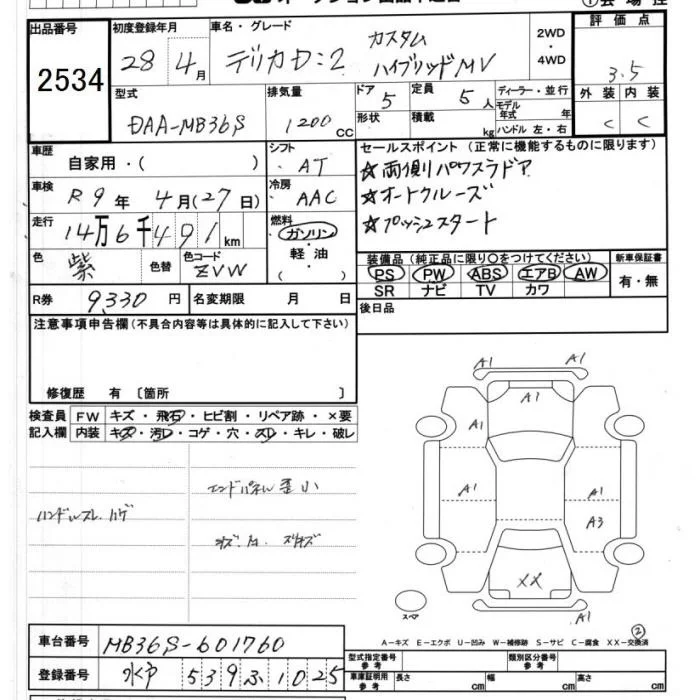 出品番号 初度登録年月 車名・グレード 2WD・4WD 評価点
2534 28年4月 デリカD:2 カスタム ハイブリッドMV 3.5
型式 排気量 ドア 5 定員 5人 ディーラー・並行 外装 内装
DAA-MB36S 1200cc 形状 積載 kg モデル年式 年 ハンドル 左・右 C C
車歴 自家用・( ) シフト AT セールスポイント(正常に機能するものに限ります)
☆両側パワスラドア
車検 R9年4月(27日) 冷房 AAC ☆オートクルーズ
走行 14万6千491km 燃料 ガソリン・軽油・ ☆プッシュスタート
色 紫 色替 色コード ZVW 装備品(純正品に限り○をつけてください) 新車保証書
PS PW ABS エアB AW 有・無
SR ナビ TV カワ
R券 9,330円 名変期限 月 日 後日品
注意事項申告欄(不具合内容等は具体的に記入して下さい)
修復歴 有〔箇所 〕
検査員記入欄 FW キズ・飛石・ヒビ割・リペア跡・×要
内装 キズ・汚レ・コゲ・穴・スレ・キレ・破レ
エンドパネル歪小
ハンドルスレ、ハゲ
A1 A1
A1
A1
A1 A1
A3
XX
スペア A1
②
A-キズ E-エクボ U-凹み W-補修跡 S-サビ C-腐食 XX-交換済
車台番号 MB36S-601760
型式指定番号 参考 類別区分番号 参考
登録番号 水戸 539ふ1025
車庫証明用 参考 長さ cm 幅 cm 高さ cm